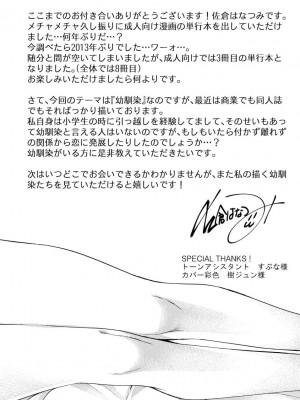 ここまでのお付き合いありがとうございます！佐倉はなつみです。
メチャメチャ久し振りに成人向け漫画の単行本を出していただけ
ました…何年ぶりだ…？
今調べたら2013年ぶりでした…ワーォ…。
随分と間が空いてしまいましたが、成人向けでは3冊目の単行本と
なりました。(全体では8冊目)
お楽しみいただけましたら何よりです。
さて、今回のテーマは『幼馴染』なのですが、最近は商業でも同人誌
でもそればっかり描いております。
私自身は小学生の時に引っ越しを経験してまして、そのせいもあっ
て幼馴染と言える人はいないのですが、もしもいたら付かず離れず
の関係から恋に発展したりしたのでしょうか…？
幼馴染がいる方に是非教えていただきたいです。
次はいつどこでお会いできるかわかりませんが、また私の描く幼馴
染たちを見ていただけると嬉しいです！
佐倉はなつみ
SPECIAL THANKS！
トーンアシスタント　すぷな様
カバー彩色　樹ジュン様